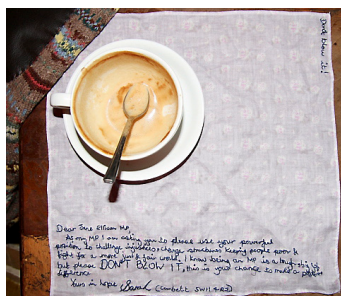 Don't blow it!
Dear Jane Ellison MP,
As my MP I am asking you to please use your powerful
position to challenge injustice & change structures keeping people poor &
fight for a more just & fair world. I know being an MP is a tough job
but please DON'T BLOW IT, this is your chance to make a positive
difference.
Yours in hope Sarah Corbett